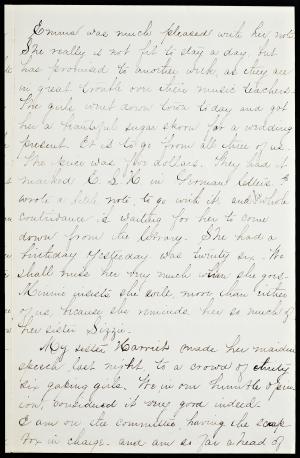 Emma was much pleased with her note
She really is not fit to stay a day, but
has promised to another week, as they are
in great trouble over their music teachers.
The girls went down town today and got
her a beautiful sugar spoon for a wedding
present. It is to go from all three of us.
The price was five dollars. They had it
marked E. S. K in German letters. &
wrote a little note, to go with it, and whole
contrivance is waiting for her to come
down from the library. She had a
birthday yesterday was twenty six. We
shall miss her very much when she goes.
Minnie insists she will, more than either
of us, because she reminds her so much of
her sister Lizzie.
My sister Harriet made her maiden
speech last night to a crowd of thirty
six gaping girls. We in our humble opin
ion, considered it very good indeed.
I am on the committee, having the scrap
box in charge. and am so far ahead of